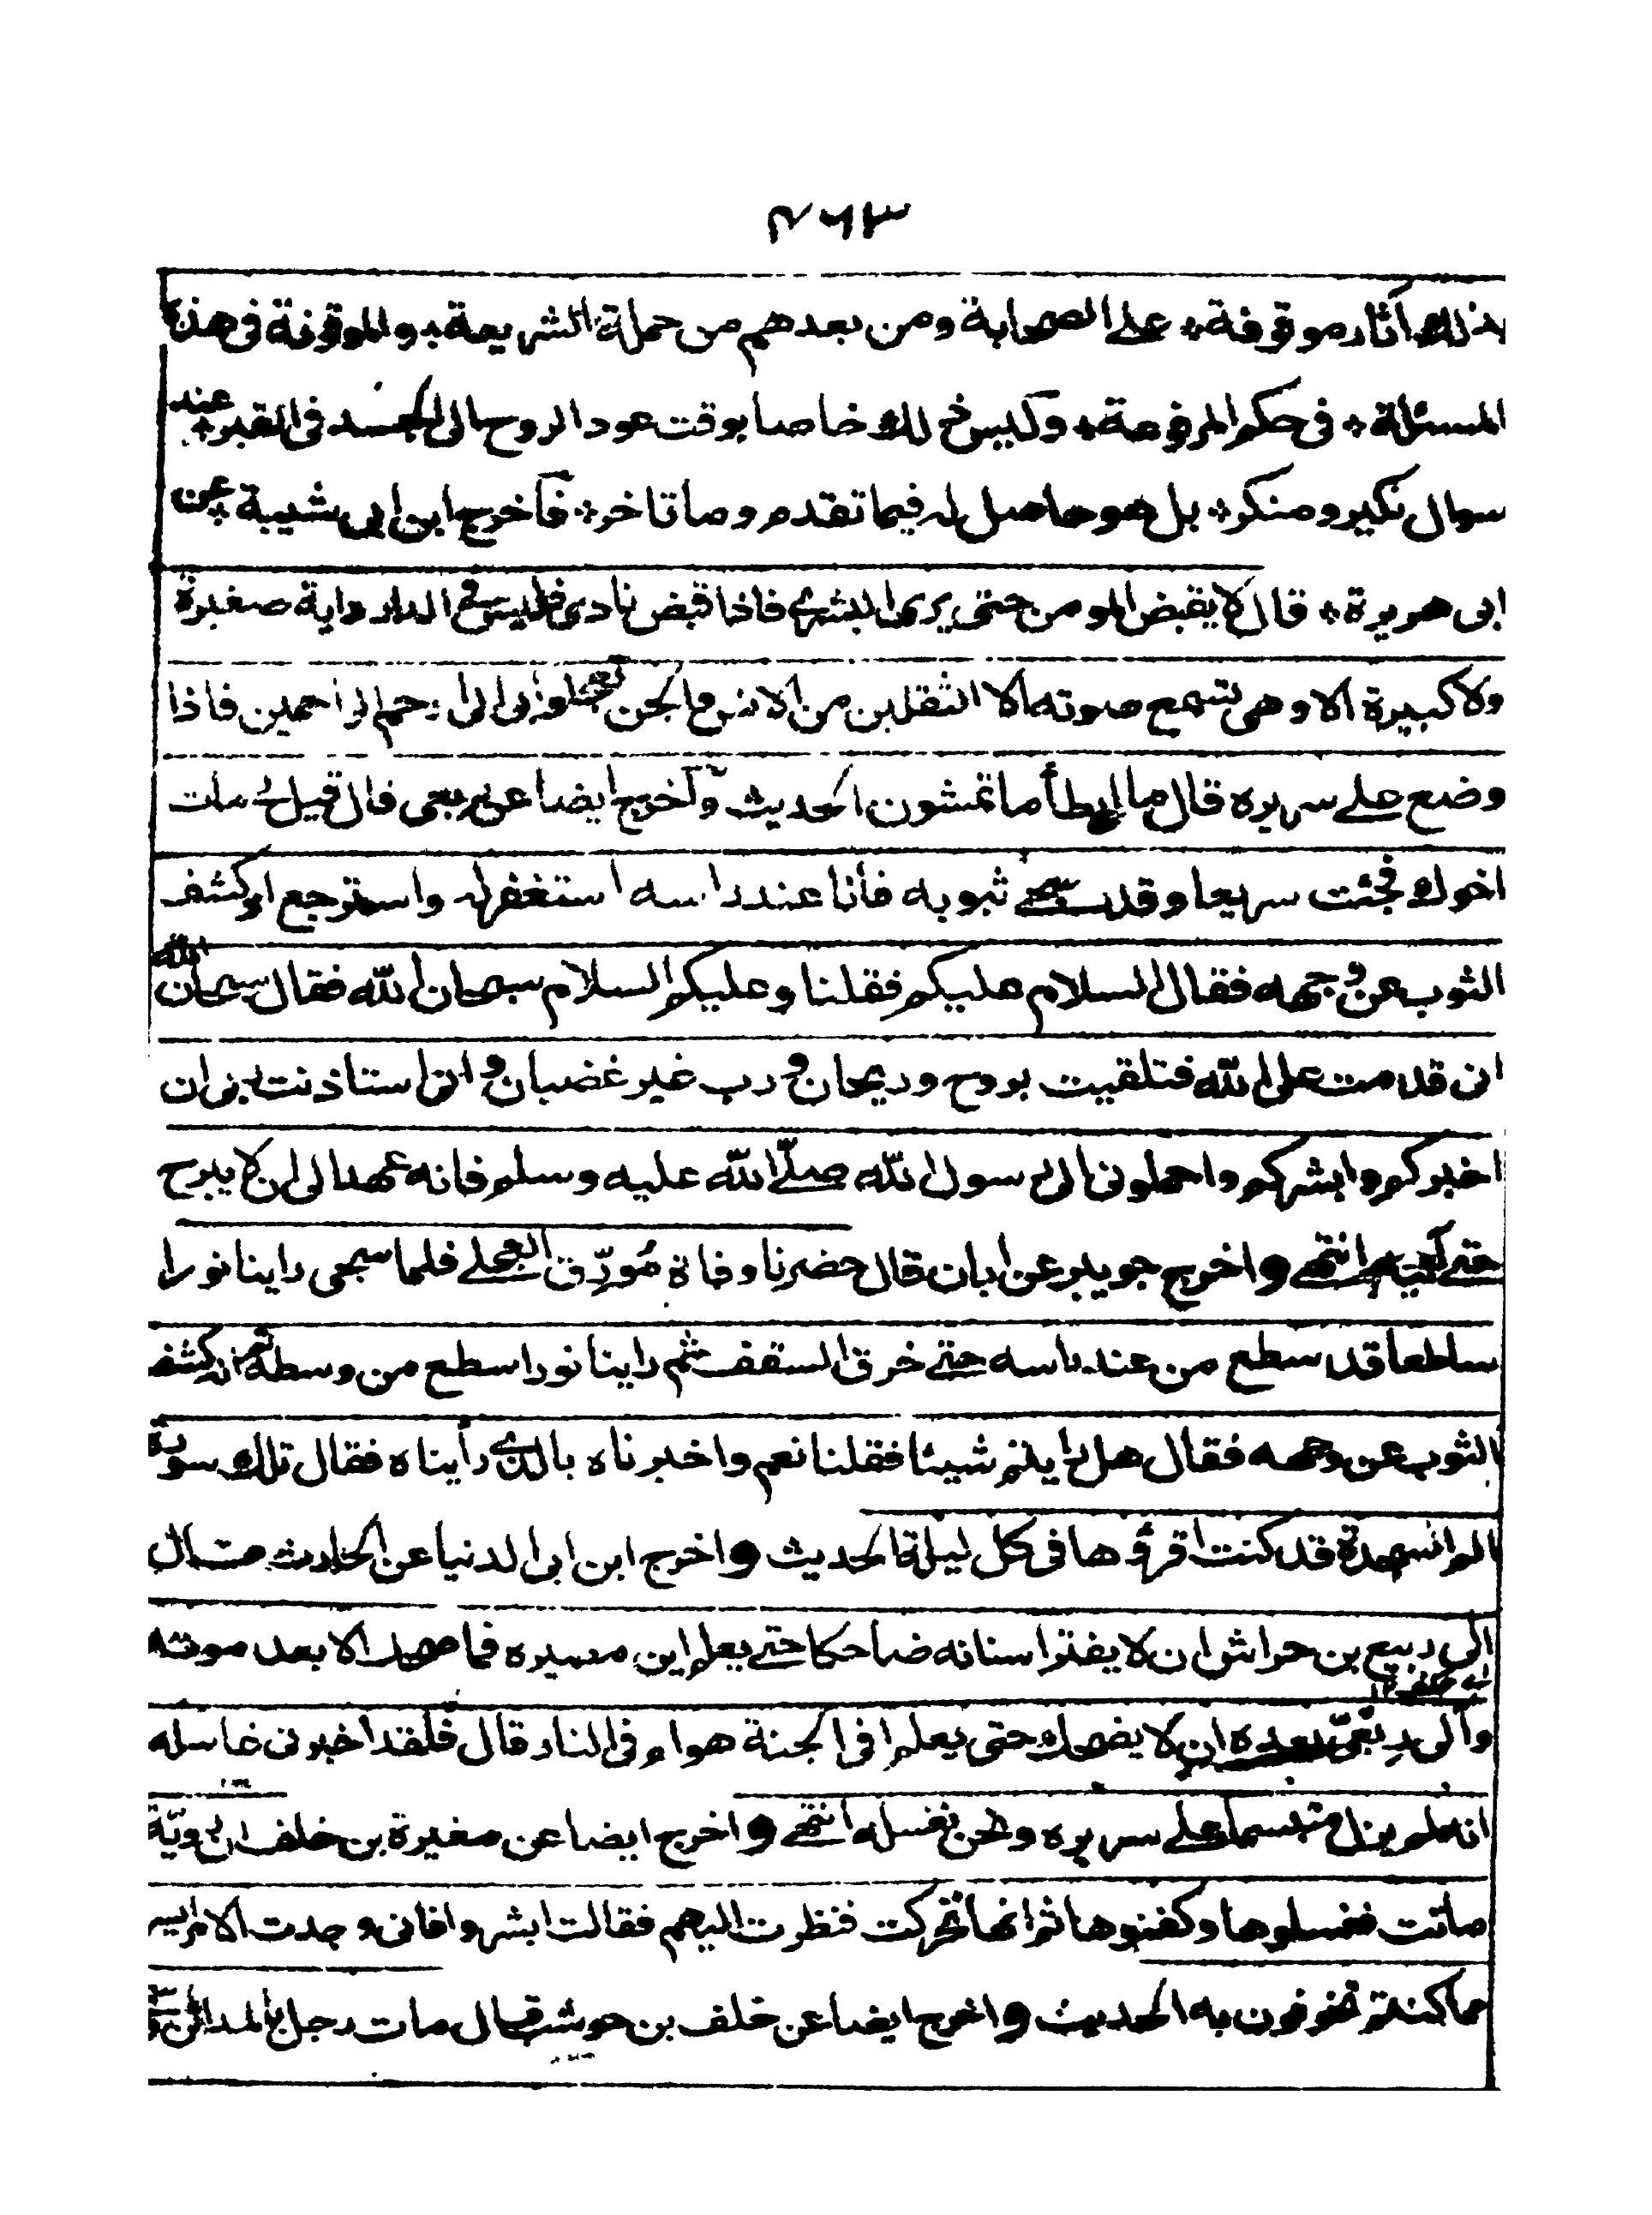 ۴۶۳
بذلك آثار موقوفة * على الصحابة ومن بعدهم من حملة الشريعة * والموقوفة فى هذه
المسئلة * فى حكم المرفوعة * وليس ذلك خاصا بوقت عود الروح الى الجسد فى القبر * عند
سوال نكير ومنكر * بل هو حاصل له فيما تقدم وما تاخر * فاخرج ابن ابى شيبة * عن
ابى هريرة * قال لا يقبض المومن حتى يرى البشرى فاذا قبض نادى فليس فى الدار داية صغيرة
ولا كبيرة الا وهى تسمع صوته الا الثقلين من الانس والجن تعجلوا بى الى ارحم الراحمين فاذا
وضع على سريره قال ما ابطأ ما تمشون الحديث وآخرج ايضا عن ربعى قال قيل لى مات
اخوك فجئت سريعا وقد سجى ثبوبه فأنا عند راسه استغفر له واسترجع اذ كشف
الثوب عن وجهه فقال السلام عليكم فقلنا وعليكم السلام سبحان الله فقال سبحان الله
انى قدمت على الله فتلقيت بروح وريحان ورب غير غضبان وانى استاذنت ربى ان
اخبركم وابشركم واحملونى الى رسول الله صلّى الله عليه وسلم فانه عهد الى ان لا يبرح
حتى آتيه انتهى واخرج جويبر عن ابان قال حضرنا وفاة مُورّق العجلى فلما سجى راينا نورا
ساطعا قد سطع من عند راسه حتى خرق السقف ثم راينا نورا سطع من وسطه ثم انه كشف
الثوب عن وجهه فقال هل رايتم شيئا فقلنا نعم واخبرناه بالذى رأيناه فقال تلك سورة
الم السجدة قد كنت اقرؤها فى كل ليلة الحديث واخرج ابن ابى الدنيا عن الحارث قال
آلى ربيع بن حراش ان لا يفتر اسنانه ضاحكا حتى يعلم اين مصيره فما ضحك الا بعد موته
وآلى ربعىّ بعده ان لا يضحك حتى يعلم افى الجنة هو ام فى النار قال فلقد اخبرنى غاسله
انه لم يزل متبسما على سريره ونحن نغسله انتهى واخرج ايضا عن مغيرة بن خلف ان رويّة
ماتت فغسلوها وكفنوها ثم انها تحركت فنظرت اليهم فقالت ابشروا فانى وجدت الامر ايسر
مما كنتم تخوفون به الحديث واخرج ايضا عن خلف بن حوشب قال مات رجل بالمدائن